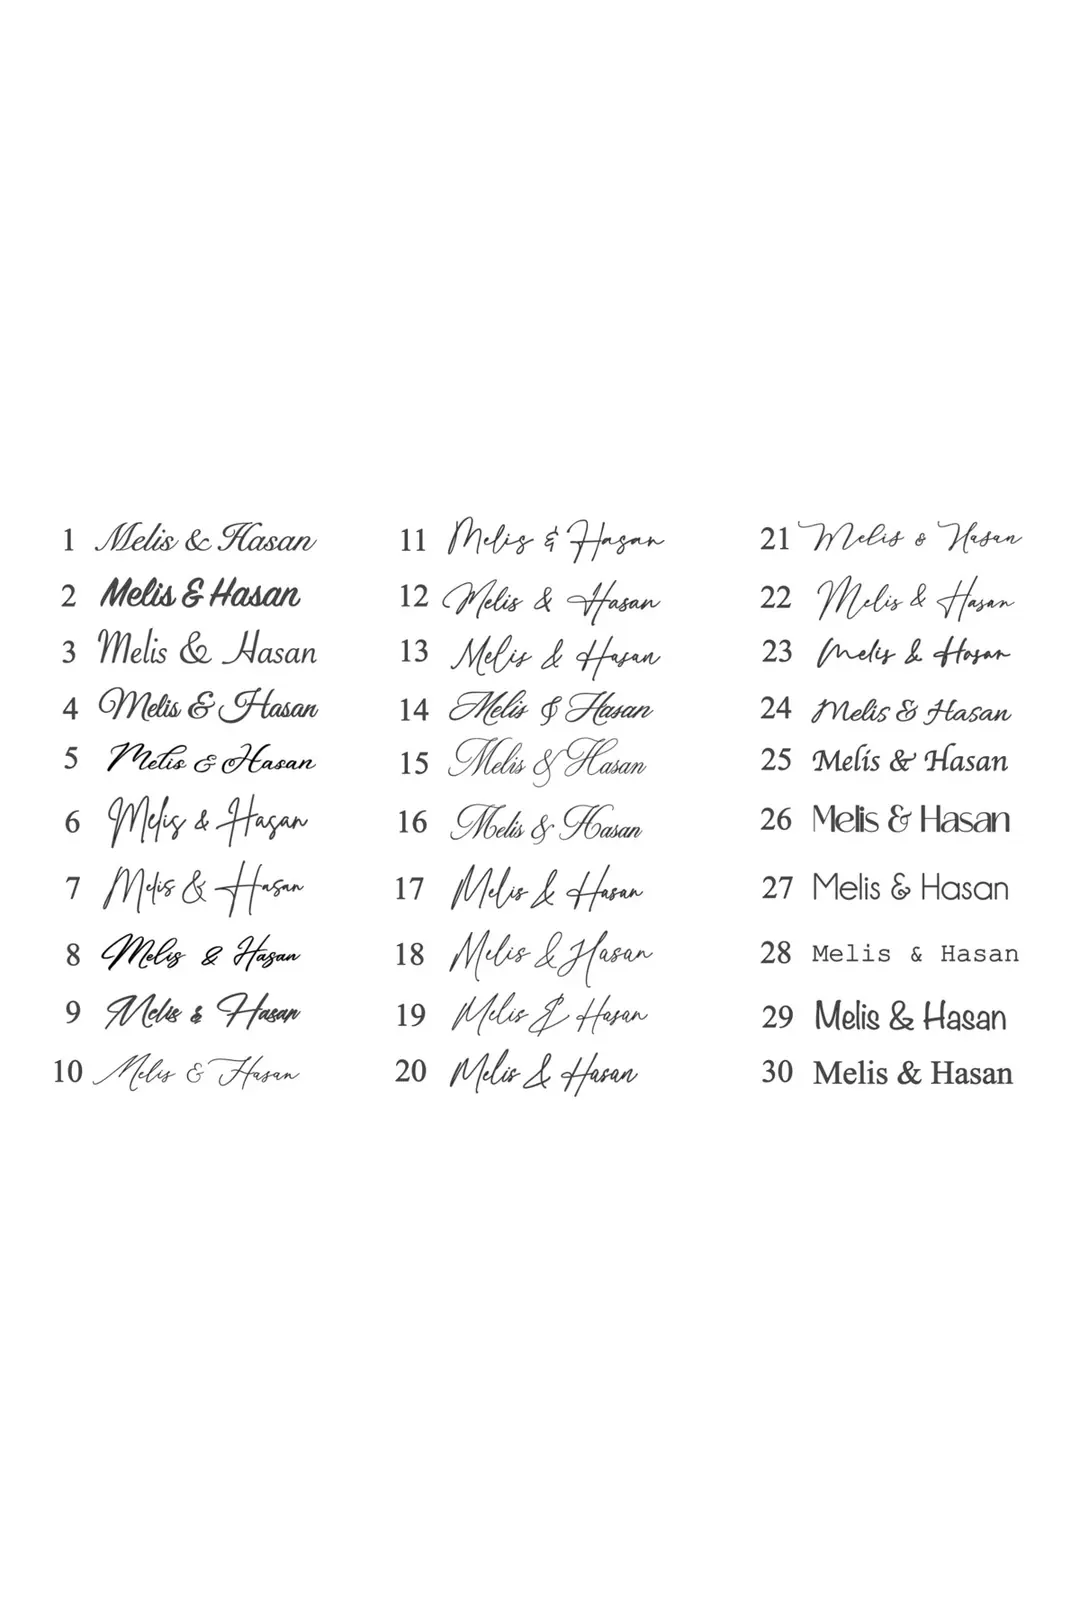 1 Melis & Hasan
2 Melis & Hasan
3 Melis & Hasan
4 Melis & Hasan
5 Melis & Hasan
6 Melis & Hasan
7 Melis & Hasan
8 Melis & Hasan
9 Melis & Hasan
10 Melis & Hasan
11 Melis & Hasan
12 Melis & Hasan
13 Melis & Hasan
14 Melis & Hasan
15 Melis & Hasan
16 Melis & Hasan
17 Melis & Hasan
18 Melis & Hasan
19 Melis & Hasan
20 Melis & Hasan
21 Melis & Hasan
22 Melis & Hasan
23 Melis & Hasan
24 Melis & Hasan
25 Melis & Hasan
26 Melis & Hasan
27 Melis & Hasan
28 Melis & Hasan
29 Melis & Hasan
30 Melis & Hasan